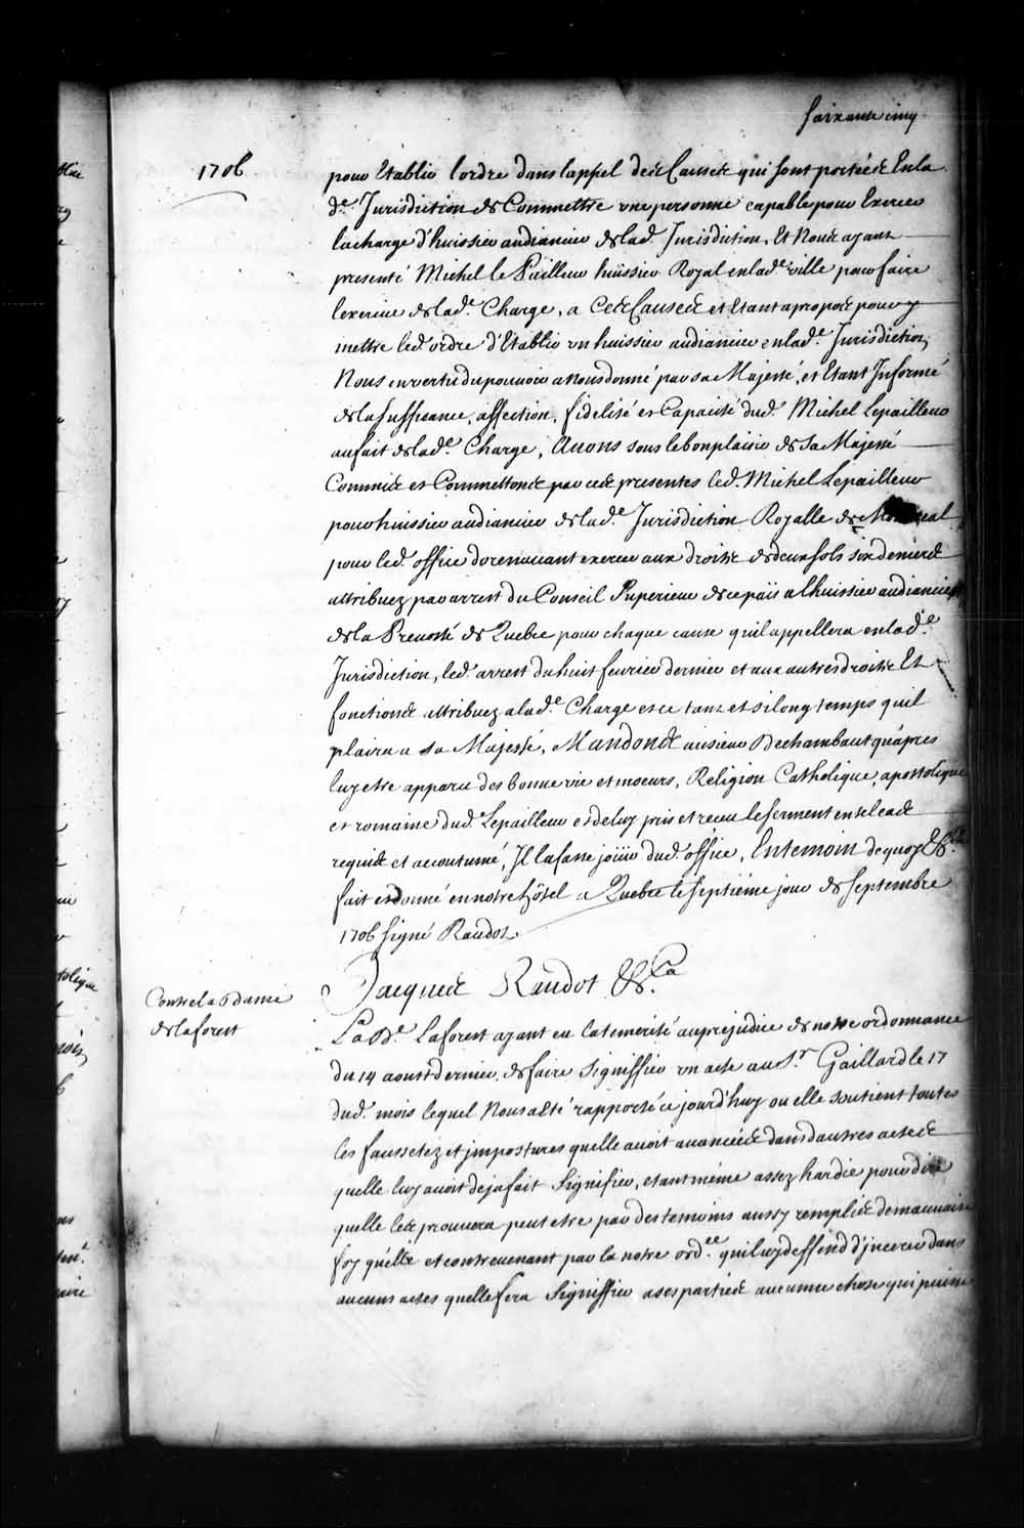 soixante cinq
1706
pour Etablir lordre dans lappel des Causes qui sont portées En la
de. Jurisdiction de Commettre une personne capable pour Exercer
la charge d'huissier audiancier de lad. Jurisdiction, Et Nous ayant
presenté Michel le Pailleur huissier Royal en lade. ville pour faire
lexercice de lade. Charge, a Ces Causes et Etant apropos pour y
mettre led. ordre d'Etablir un huissier audiancier en lade. Jurisdiction,
Nous en vertu du pouvoir a nous donné par sa Majesté, et Etant Informé
de la suffisance, affection, fidelité et Capacité dud. Michel Lepailleur
au fait de lade. Charge, Avons sous le bon plaisir de Sa Majesté
Commis et Commettons par ces presentes led. Michel Lepailleur
pour huissier audiancier de lade. Jurisdiction Royalle de Montreal
pour led. office dorenavant exercer aux droits de deux sols six deniers
attribuez par arrest du Conseil Superieur de ce païs a lhuissier audiancier
de la Prevosté de Quebec pour chaque cause qu'il appellera en lade.
Jurisdiction, led. arrest du huit fevrier dernier et aux autres droits Et
fonctions attribuez a lade. Charge et ce tant et si long temps quil
plaira a sa Majesté, Mandons au sieur Dechambaut qu'apres
luy estre apparu des bonne vie et moeurs, Religion Catholique, apostolique
et romaine dud. Lepailleur et de luy pris et receu le serment en tel cas
requis et accoutumé, Il la fasse jouir dud. office, En temoin de quoy &ca.
fait et donné en nostre hôtel a Quebec le septiéme jour de septembre
1706 signé Raudot.
Jacques Raudot &ca.
Contre la Dame
de laforest
La De. Laforest ayant eu la temerité au prejudice de nostre ordonnance
du 14 aoust dernier, de faire Signiffier un acte au Sr. Gaillard le 17
dud. mois lequel Nous a eté rapporté ce jourd'huy ou elle soutient toutes
les faussetez et impostures quelle avoit avancées dans dautres actes
quelle luy avoit deja fait Signifier, et ant méme assez hardie pour dire
quelle les prouvera peut estre par des temoins aussy remplis de mauvaise
foy qu'elle et contrevenant par la notre ordce. qui luy deffend d'inserer dans
aucuns actes quelle fera Signiffier a ses parties aucunne chose qui puisse